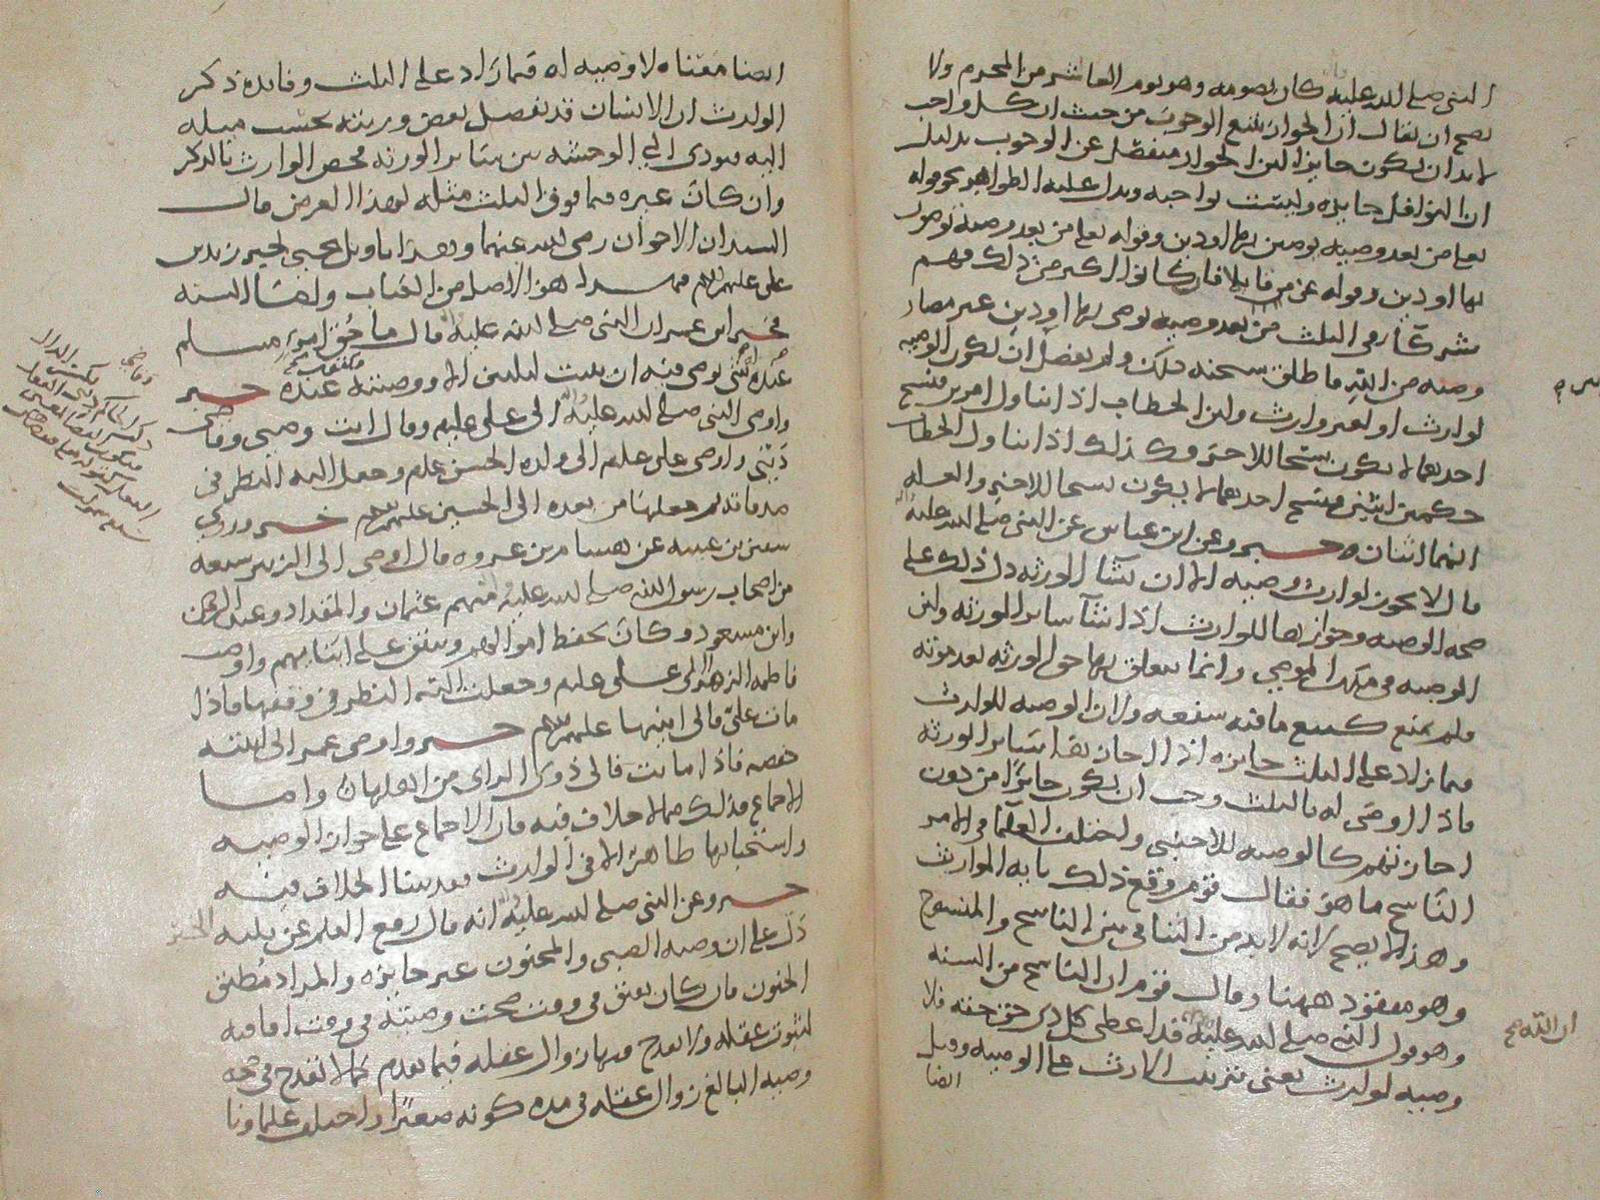 النبي صلى الله عليه كان يصومه وهو يوم العاشر من المحرم ولا
يصح ان يقال ان الجواز يمنع الوجوب من حيث ان كل واجب
لا بد ان يكون جايزا لان الجواز منفصل عن الوجوب بدليل
ان النوافل جايزه وليست بواجبه ويدل عليه الظواهر نحو قوله
تعالى من بعد وصيه يوصين بها او دين وقوله تعالى من بعد وصية توصون
بها او دين وقوله عز من قايل فان كانوا اكثر من ذلك فهم
شركآء في الثلث من بعد وصيه يوصى بها او دين غير مضار
وصيه من الله فاطلق سبحنه ذلك ولم يفصل ان تكون الوصيه
لوارث او لغير وارث ولان الخطاب اذا تناول امرين فنسخ
احدهما لا يكون نسخا للاخر وكذلك اذا تناول الخطاب
حكمين اثنين فنسخ احدهما لا يكون نسخا للاخر والعله
انهما اثنان خبر وعن ابن عباس عن النبي صلى الله عليه
قال لا يجوز لوارث وصيه الا ان يشآ الورثه دل ذلك على
صحه الوصيه وجوازها للوارث اذا شآ ساير الورثه ولان
الوصيه في ملك الموصي وانما يتعلق بها حق الورثه بعد موته
ولم يمنع كبيع ما فيه شفعه ولان الوصيه للوارث
فيما زاد على الثلث جايزه اذا اجازها ساير الورثه
فاذا اوصى له بالثلث وجب ان يكون جايزا من دون
اجازتهم كالوصيه للاجنبي واختلف العلمآ في الامر
الناسخ ما هو فقال قوم وقع ذلك بايه الموارث
وهذا لا يصح لانه لا بد من التنافي بين الناسخ والمنسوخ
وهو مفقود ههنا وقال قوم ان الناسخ من السنه
وهو قول النبي صلى الله عليه قد اعطى كل ذي حق حقه فلا
ان الله صح
وصيه لوارث يعني بترتيب الارث على الوصيه وقيل
ايضا
ايضا معناه لا وصيه له فيما زاد على الثلث وفايده ذكر
الوارث ان الانسان قد يفضل بعض ورثته بحسب ميله
اليه فيودي الى الوحشه بين ساير الورثه فخص الوارث بالذكر
وان كان غيره فيما فوق الثلث مثله لهذا الغرض قال
السيدان الاخوان رضي الله عنهما وبهذا تاويل يحيى الخير زيد بن
علي عليهم السلم فهذا هو الاصل من الكتاب واما السنه
فخبر ابن عمر ان النبي صلى الله عليه قال ما حق امرئ مسلم
عنده شي يوصى فيه ان يبيت ليلتين الا ووصيته مكتوبه عنده خبر
واوصى النبي صلى الله عليه الى علي عليلم وقال انت وصيي وقاضي
ديني واوصى علي علم الى ولده الحسن علم وجعل اليه النظر في
صدقاته ثم جعلها من بعده الى الحسين عليهم السلم خبر وروي
سفين بن عيينه عن هشام بن عروه قال اوصى الى الزبير سبعه
من اصحاب رسول الله صلى الله عليه منهم عثمان والمقداد وعبد الرحمن
وابن مسعود وكان يحفظ اموالهم وينفق على ابنايهم واوصت
فاطمه الزهرا الى علي علم وجعلت اليه النظر في وقفها فاذا
مات علي فالى ابنيها عليهم السلم خبر واوصى عمر الى ابنته
حفصه فاذا ماتت فالى ذوي الراي من اهلها واما
الاجماع فذلك مما لا خلاف فيه فان الاجماع على جواز الوصيه
واستحبابها ظاهر الا في الوارث فقد بينا الخلاف فيه
خبر وعن النبي صلى الله عليه انه قال رفع القلم عن ثلثه الخبر
دل على ان وصيه الصبي والمجنون غير جايزه والمراد مطبق
الجنون فان كان يفيق في وقت صحت وصيته في وقت افاقته
لثبوت عقله ولا يقدح فيها زوال عقله فيما تقدم كما لا يقدح في صحه
وصيه البالغ زوال عقله في مده كونه صغيرا واختلف علماونا